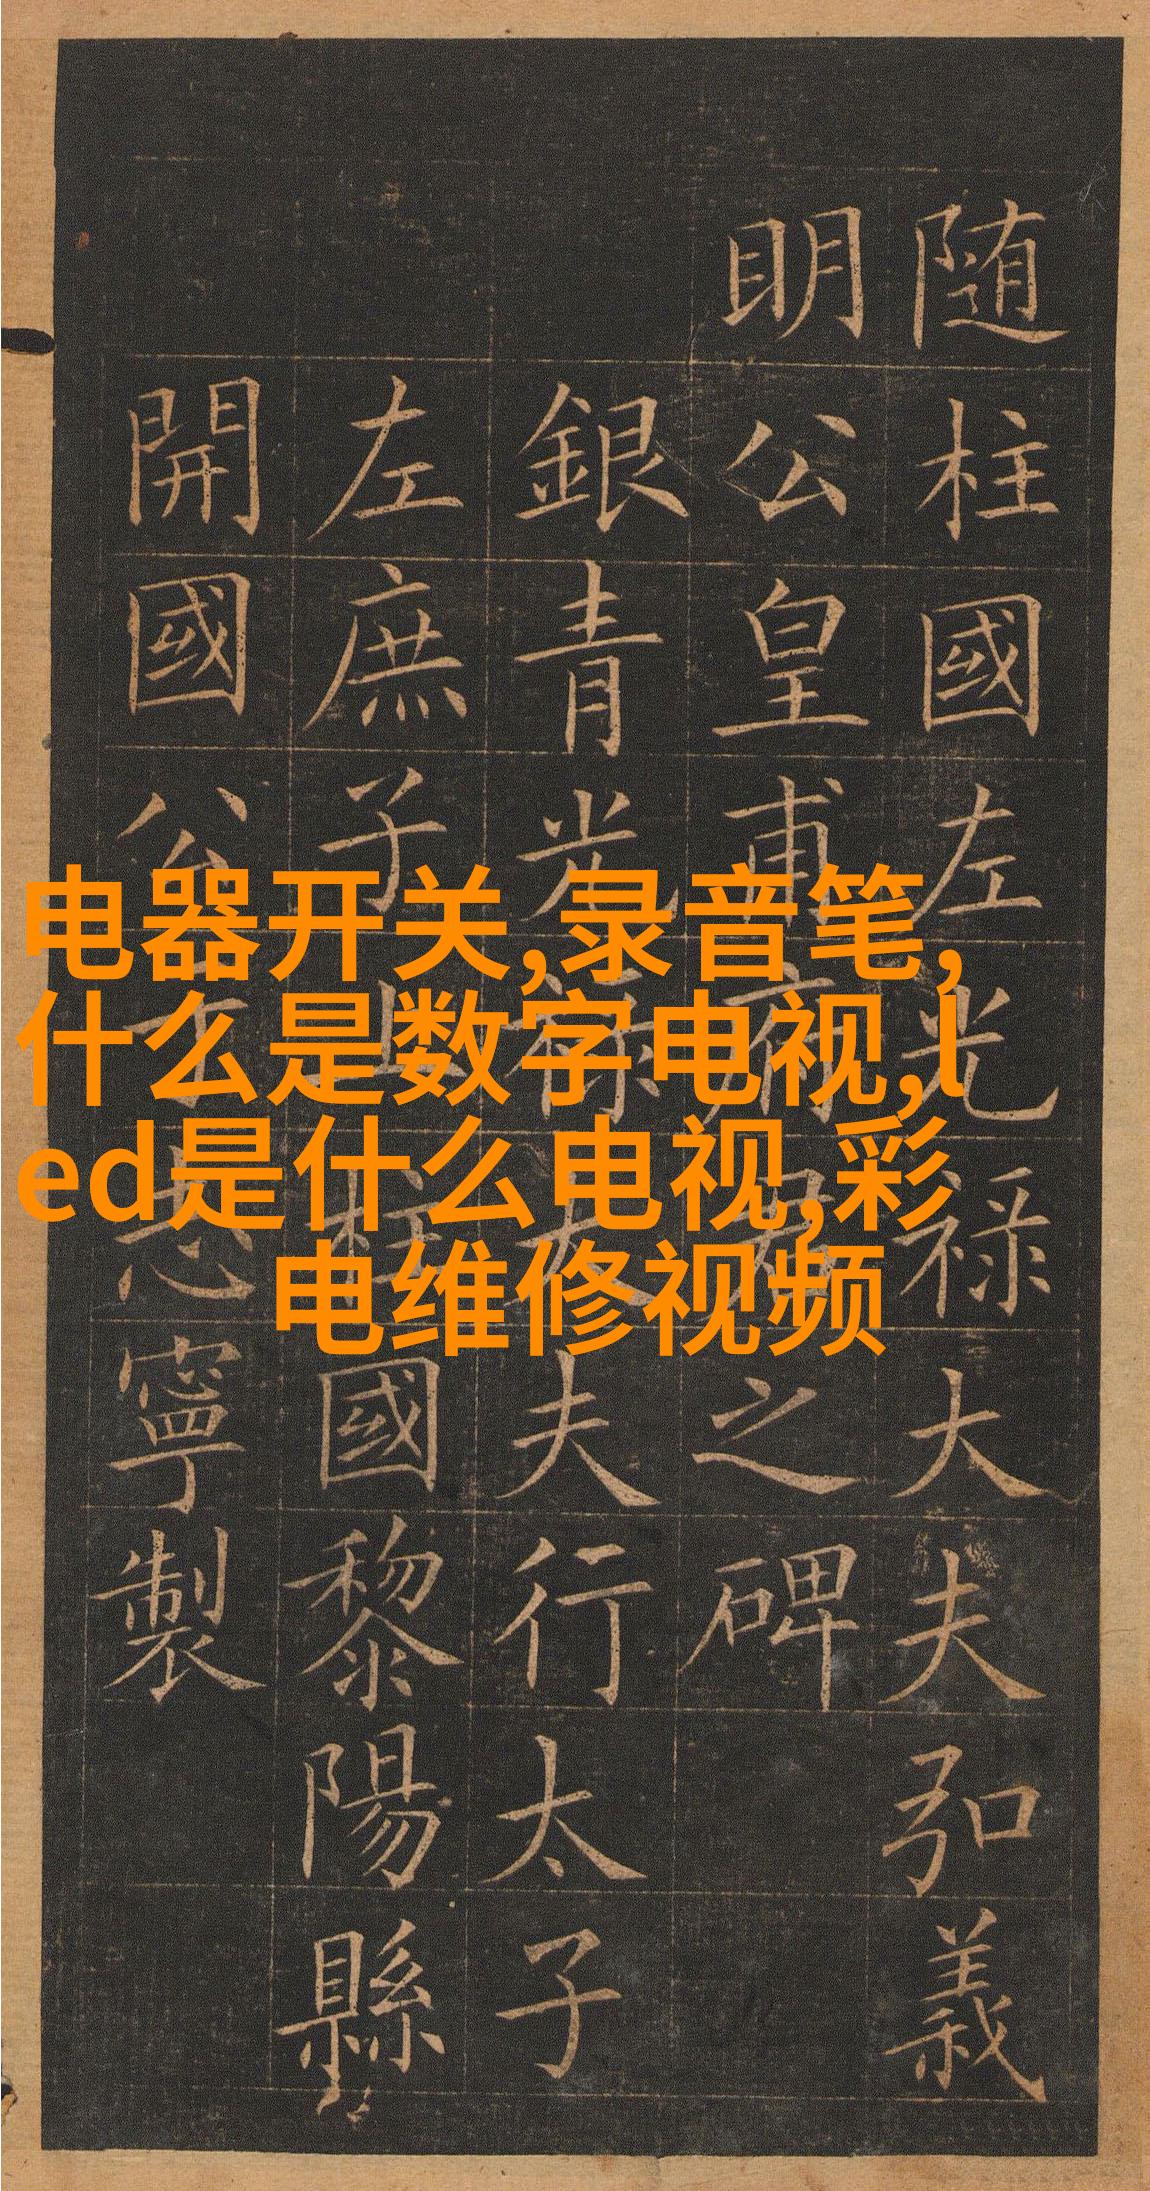 电器开关,录音笔,
什么是数字电视,l
ed是什么电视,彩
电维修视频
随柱國左光禄大夫弘義
明公皇甫府君之碑
銀青光禄大夫行太子
左庶子上柱國黎陽縣
開國公于志寧製